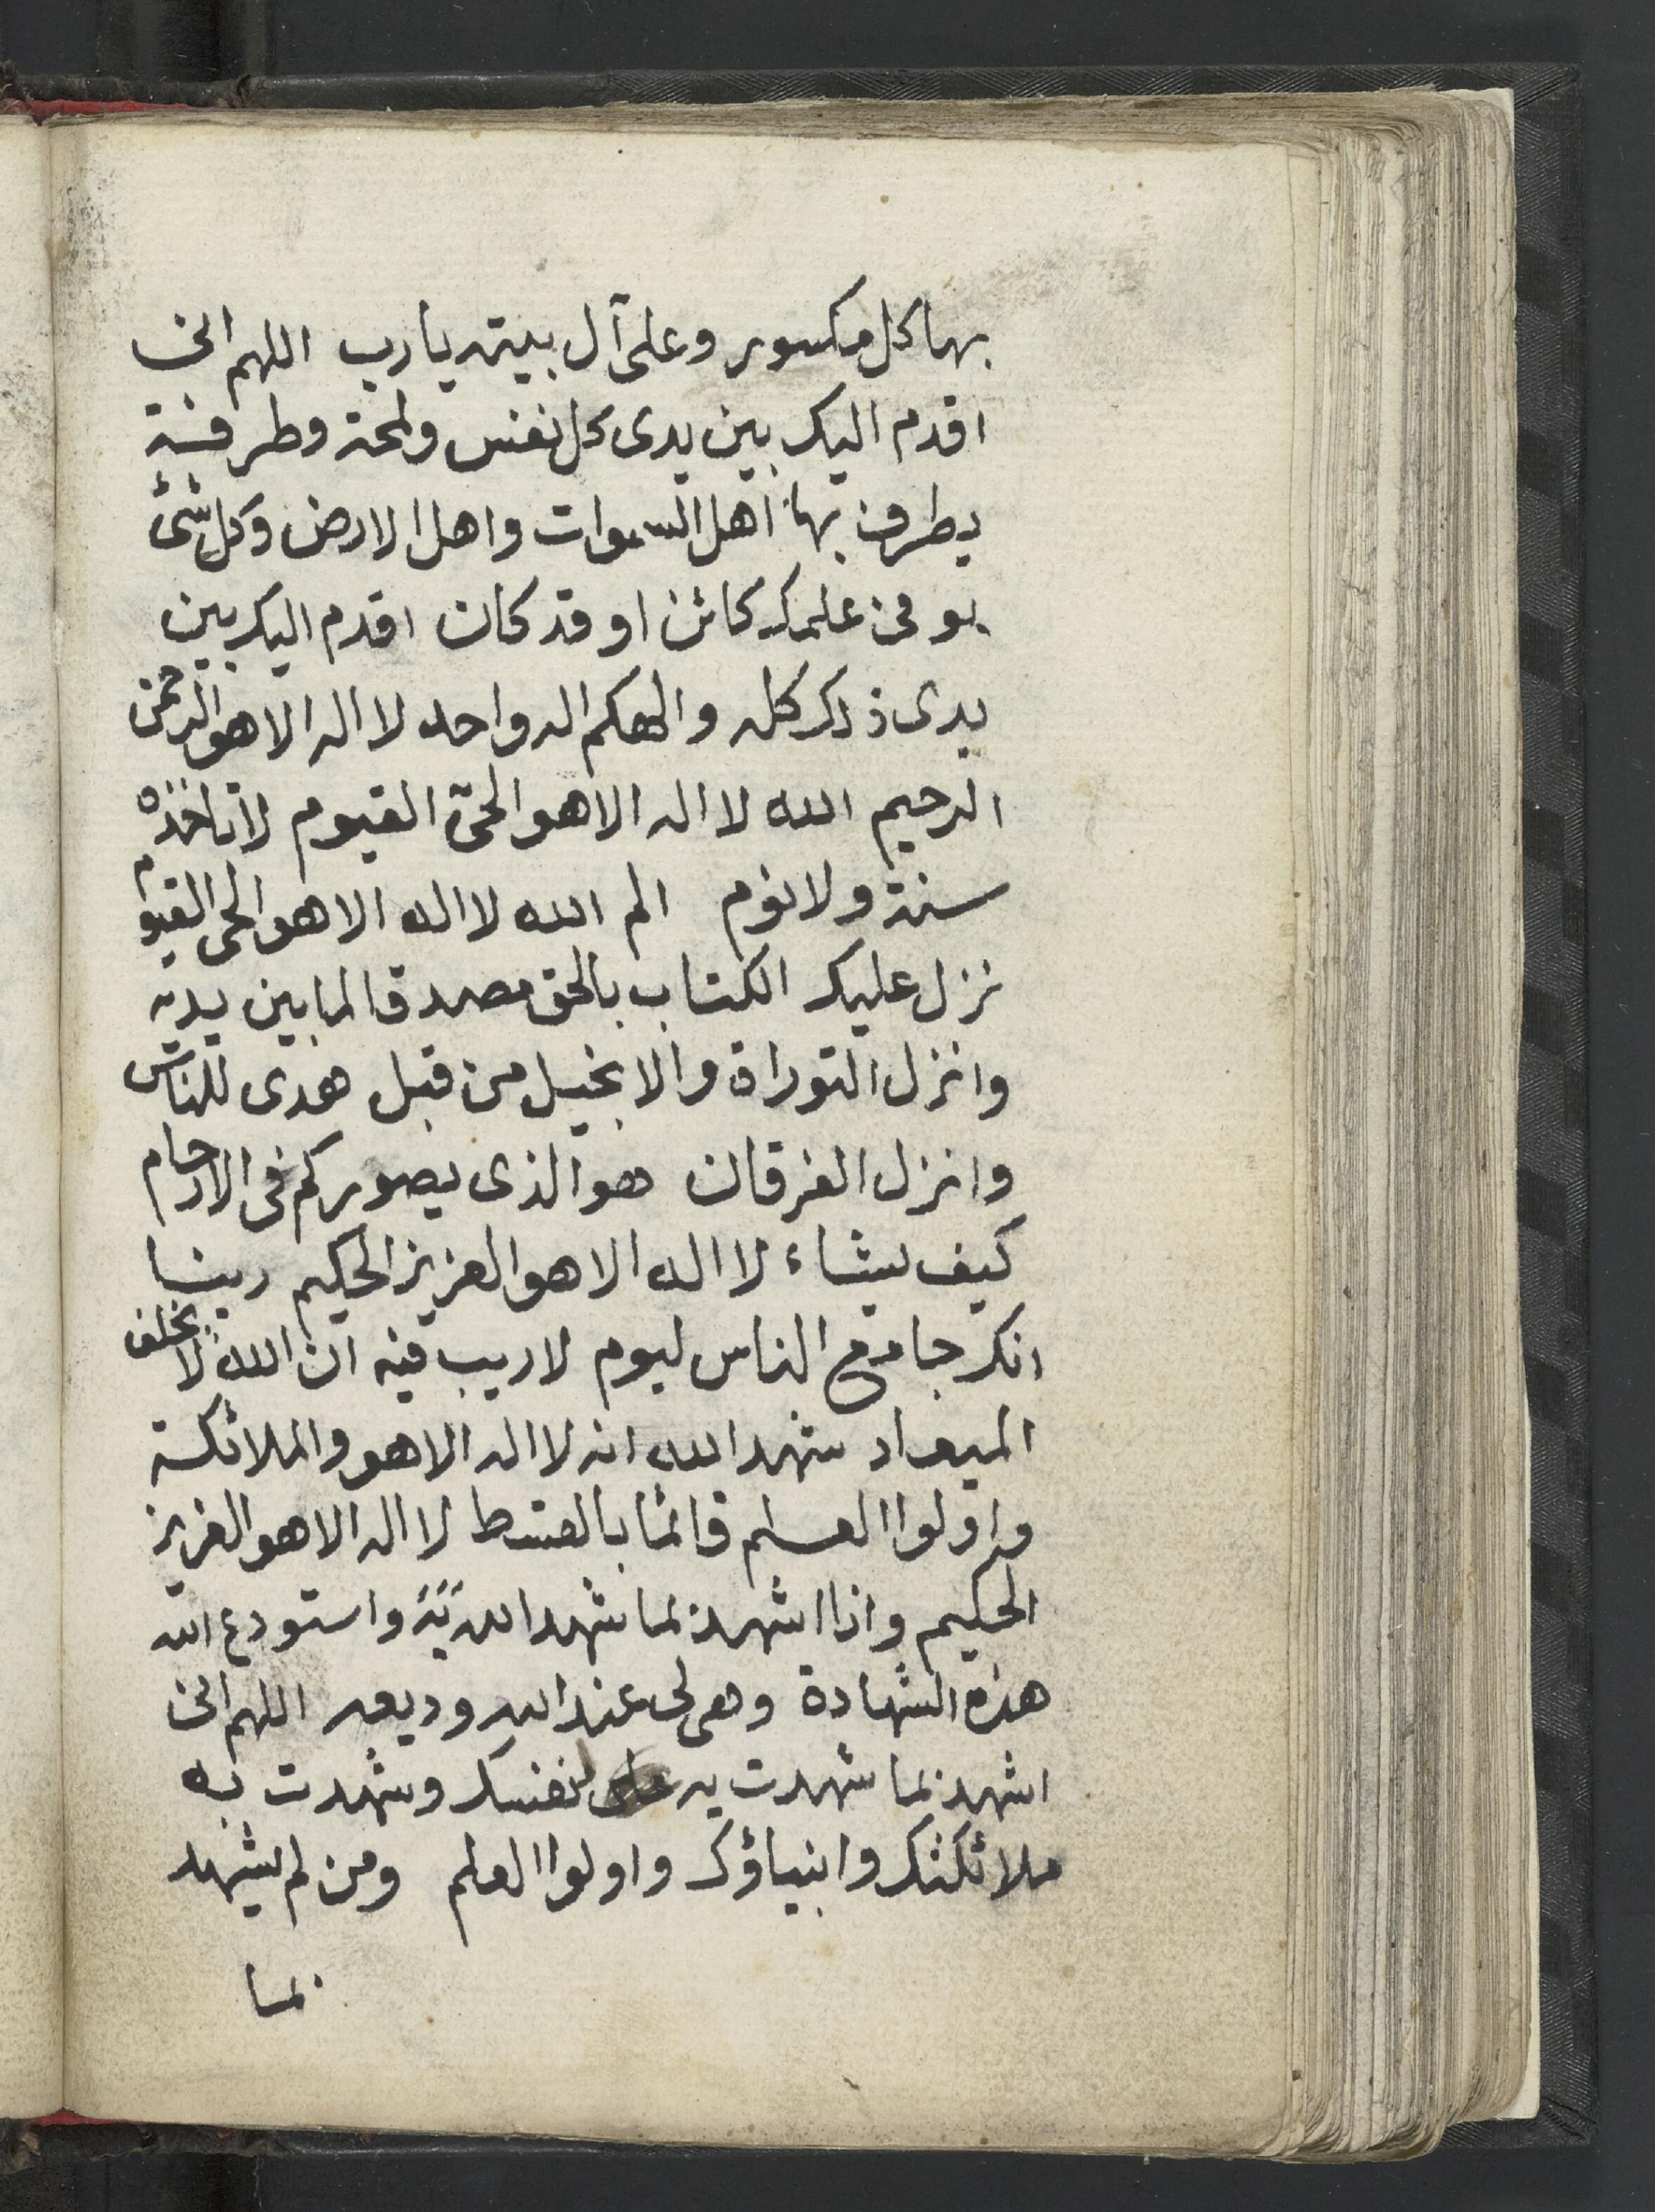 بها كل مكسور وعلى آل بيته يا رب اللهم انى
اقدم اليك بين يدى كل نفس ولمحة وطرفة
يطرف بها اهل السموات واهل الارض وكل شئ
هو فى علمك كائن او قد كان اقدم اليك بين
يدى ذلك كله والهكم اله واحد لا اله الا هو الرحمن
الرحيم الله لا اله الا هو الحىّ القيوم لا تاخذه
سنة ولا نوم الم الله لا اله الا هو الحى القيوم
نزل عليك الكتاب بالحق مصدقا لما بين يديه
وانزل التوراة والانجيل من قبل هدى للناس
وانزل الفرقان هو الذى يصوركم فى الارحام
كيف يشاء لا اله الا هو العزيز الحكيم ربنا
انك جامع الناس ليوم لا ريب فيه ان الله لا يخلف
الميعاد شهد الله انه لا اله الا هو والملائكة
واولوا العلم قائما بالقسط لا اله الا هو العزيز
الحكيم وانا اشهد بما شهد الله به واستودع الله
هذه الشهادة وهى لى عند الله وديعه اللهم انى
اشهد بما شهدت به لنفسك وشهدت به
ملائكتك وانبياؤك واولوا العلم ومن لم يشهد
بما